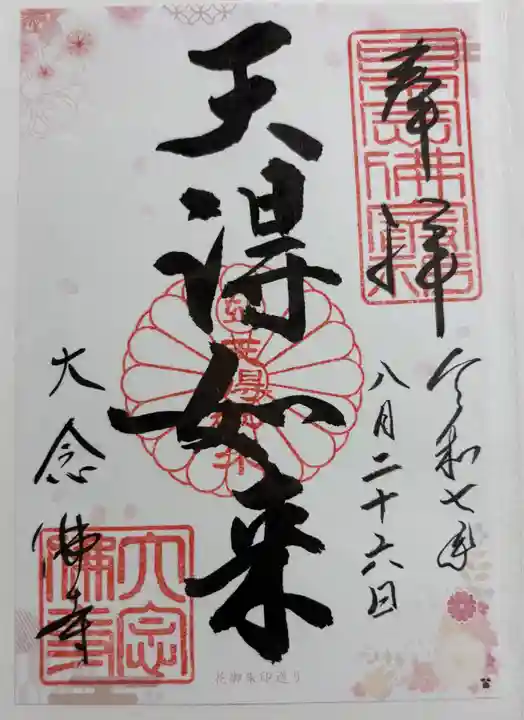 奉拝
令和七年
八月二十六日
天得如来
大念佛寺
大念佛寺
花御朱印巡り